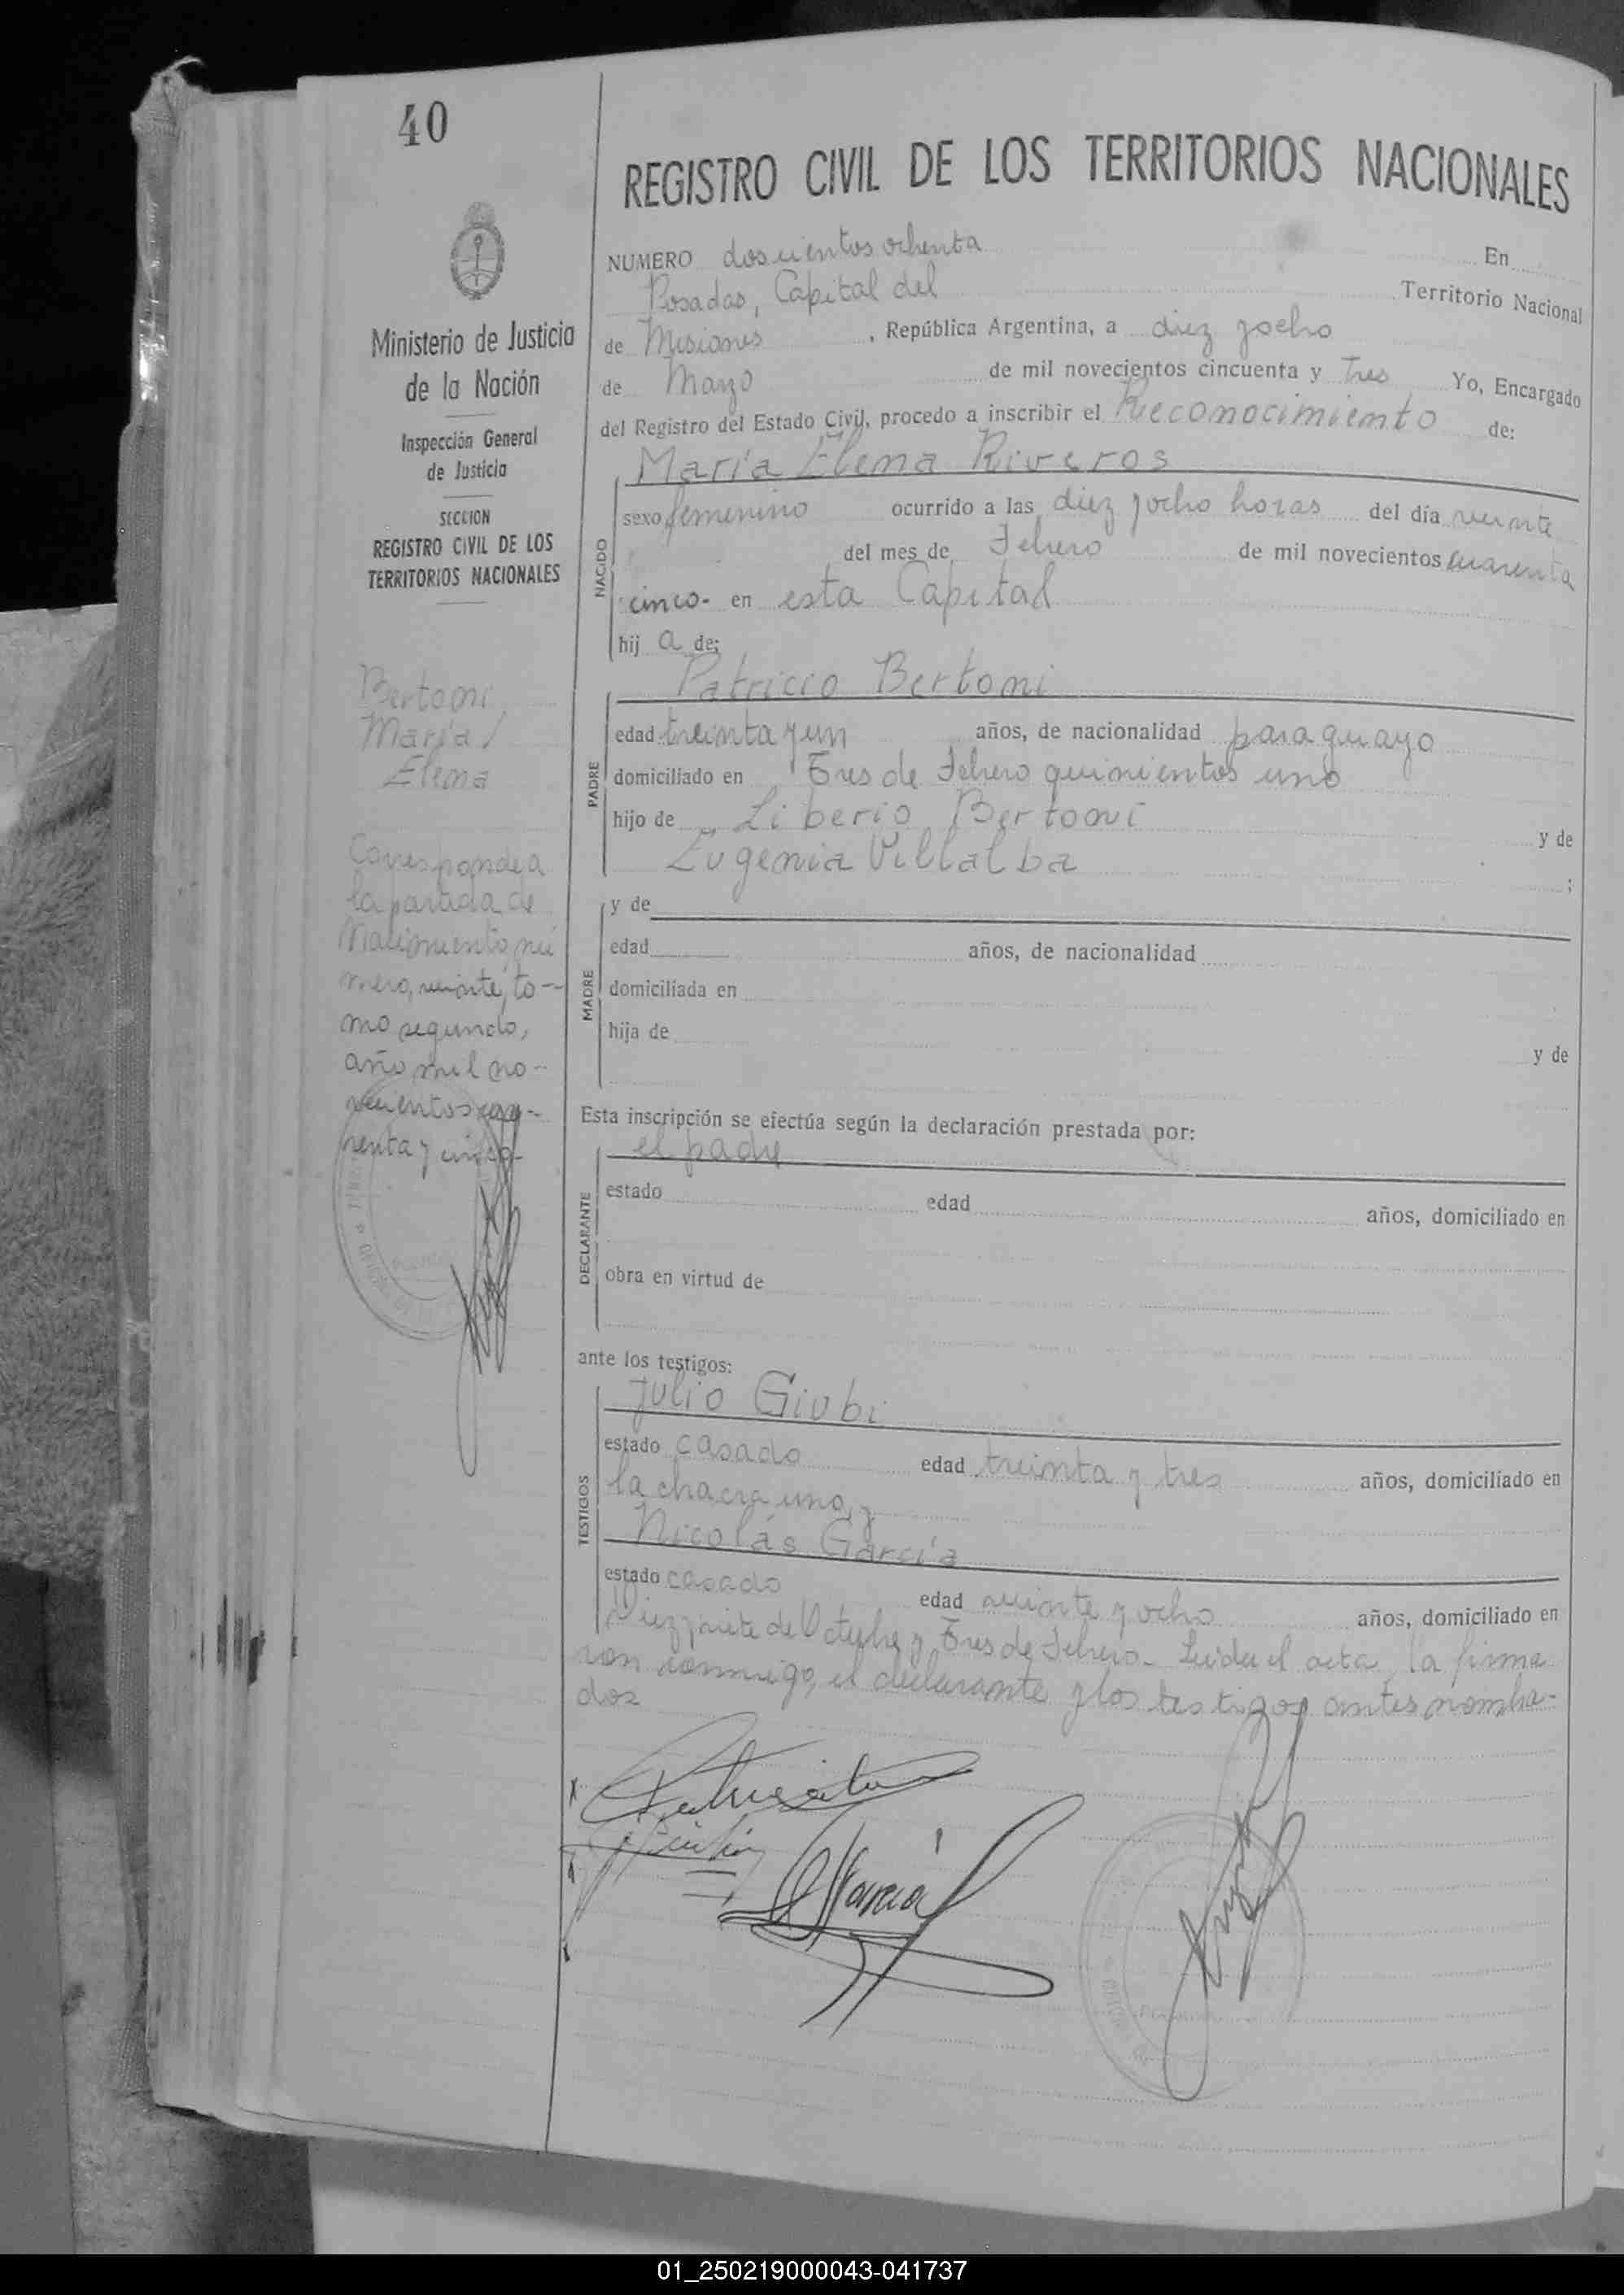 40
REGISTRO CIVIL DE LOS TERRITORIOS NACIONALES
Ministerio de Justicia
de la Nación
Inspección General
de Justicia
SECCION
REGISTRO CIVIL DE LOS
TERRITORIOS NACIONALES
Bertoni
María
Elena
Corresponde a
la partida de
Nacimiento nú
mero, veinte, to-
mo segundo,
año mil no-
vecientos cua-
renta y cinco
NUMERO doscientos ochenta En
Posadas, Capital del Territorio Nacional
de Misiones, República Argentina, a diez y ocho
de Marzo de mil novecientos cincuenta y tres Yo, Encargado
del Registro del Estado Civil, procedo a inscribir el Reconocimiento de:
María Elena Riveros
NACIDO
sexo femenino ocurrido a las diez y ocho horas del día veinte
del mes de Febrero de mil novecientos cuarenta
cinco- en esta Capital
hij a de:
PADRE
Patricio Bertoni
edad treinta y un años, de nacionalidad paraguayo
domiciliado en Tres de Febrero quinientos uno
hijo de Liberio Bertoni y de
Eugenia Villalba ;
MADRE
y de
edad años, de nacionalidad
domiciliada en
hija de
y de
Esta inscripción se efectúa según la declaración prestada por:
el padre
DECLARANTE
estado edad años, domiciliado en
obra en virtud de
ante los testigos:
TESTIGOS
Julio Giubi
estado casado edad treinta y tres años, domiciliado en
la chacra uno, y
Nicolás García
estado casado edad veinte y ocho años, domiciliado en
Diez siete de Octubre y Tres de Febrero- Leída el acta, la firma
ron conmigo, el declarante y los testigos antes nombra-
dos
García
01_250219000043-041737